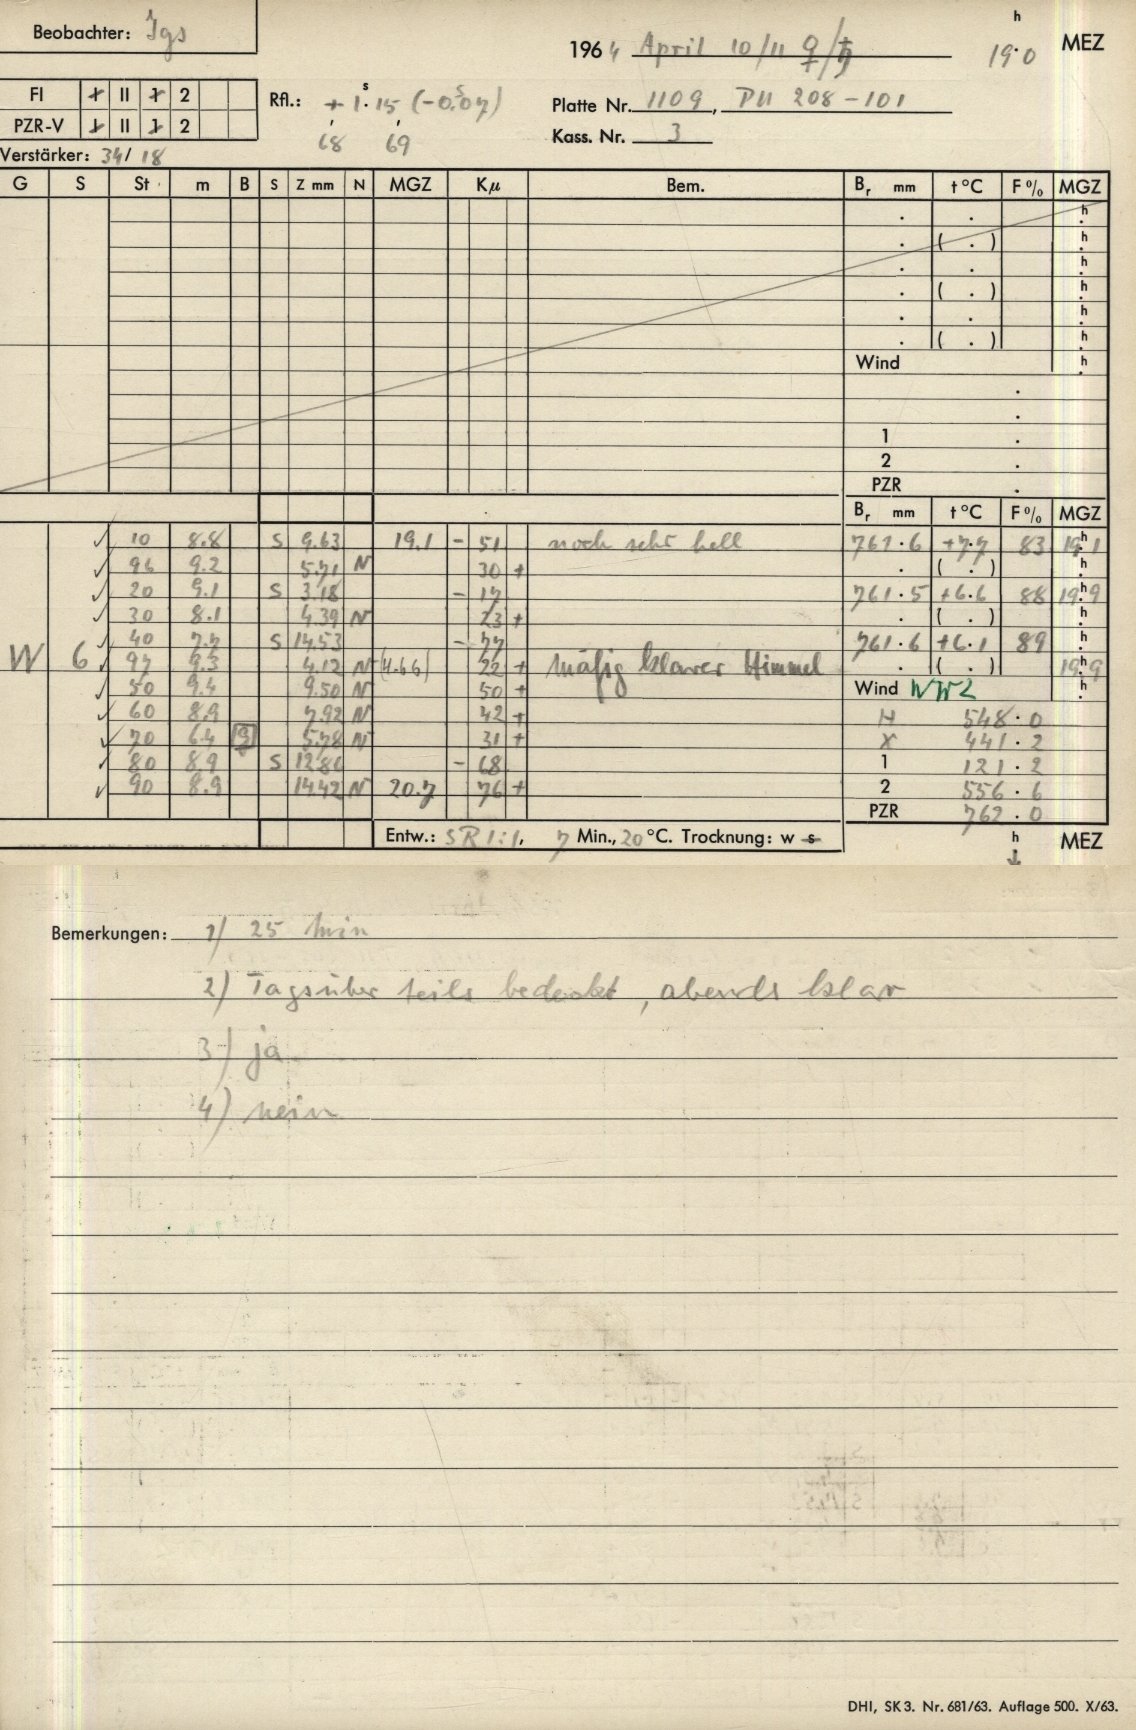 Beobachter: Jgs
1964 April 10/11 ♀/♄ 19.0 h MEZ
FI I II 1 2
Rfl.: + 1.s15 (-0.s07)
Platte Nr. 1109, PU 208-101
PZR-V I II 1 2
68 69
Kass. Nr. 3
Verstärker: 34/ 18
G S St m B S Z mm N MGZ Kμ Bem. Br mm t °C F % MGZ
. . h
. ( . ) h
. . h
. ( . ) h
. . h
. ( . ) h
Wind h
1 .
2 .
PZR .
Br mm t °C F % MGZ
✓ 10 8.8 S 9.63 19.1 - 51 noch sehr hell 761.6 +7.7 83 19.h1
✓ 96 9.2 5.71 N 30 + . ( . ) h
✓ 20 9.1 S 3.18 - 17 761.5 +6.6 88 19.h9
✓ 30 8.1 4.39 N 23 + . ( . ) h
✓ 40 7.7 S 14.53 - 77 761.6 +6.1 89 h
W 6 ✓ 97 9.3 4.12 N (4.66) 22 + mäßig klarer Himmel . ( . ) 19.h9
✓ 50 9.4 9.50 N 50 + Wind WW2 h
✓ 60 8.9 7.92 N 42 + H 548.0
✓ 70 6.4 3 5.78 N 31 + X 441.2
✓ 80 8.9 S 12.86 - 68 1 121.2
✓ 90 8.9 14.42 N 20.7 76 + 2 556.6
PZR 762.0
Entw.: SR 1:1, 7 Min., 20 °C. Trocknung: w s h MEZ
Bemerkungen: 1) 25 min
2) Tagsüber teils bedeckt, abends klar
3) ja
4) nein
DHI, SK 3. Nr. 681/63. Auflage 500. X/63.